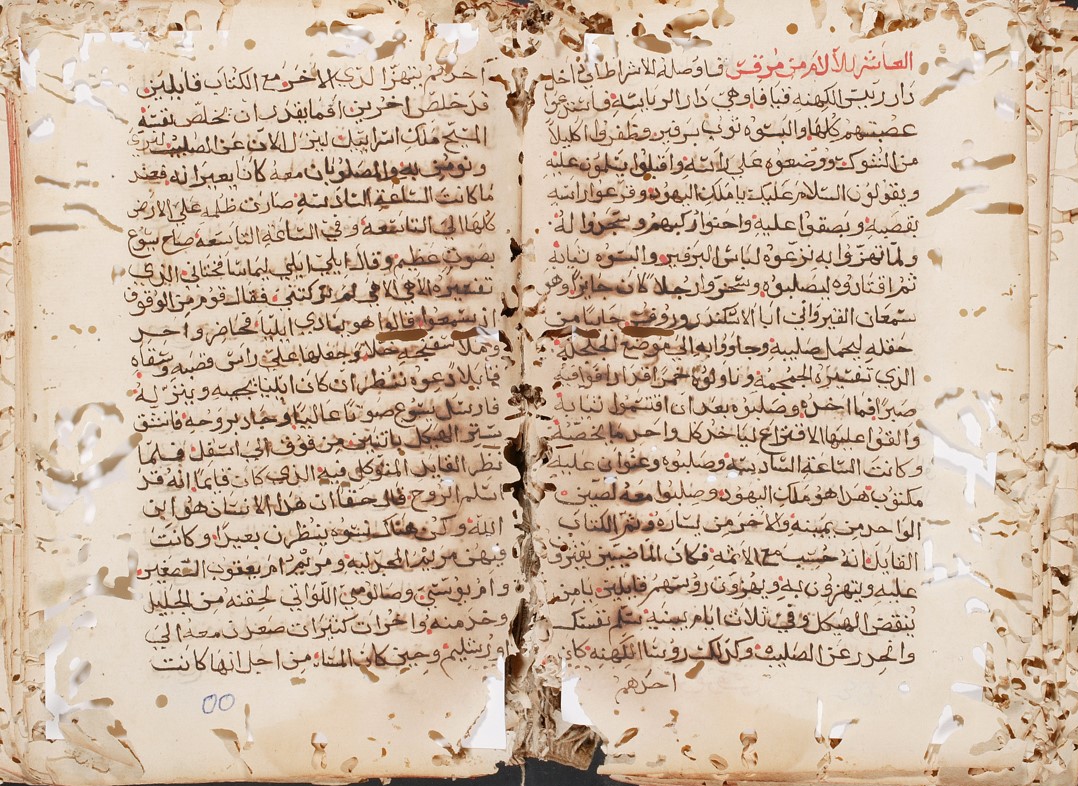 العاشر للآلام من مرقس فاوصله الاشراط الي داخل
دار رييس الكهنه قيافا وهي دار الرياسة واستدعوا
عصبتهم كلها والبسوه ثوب برفير وظفروا اكليلاً
من الشوك ووضعوه علي راسه واقبلوا يسلمون عليه
ويقولون السلام عليك ياملك اليهود وقرعوا راسه
بقصبه وبصقوا عليه واحنوا ركبهم وسجدوا له
ولما هزوا به نزعوه لباس البرفير والبسوه ثيابه
ثم اقتادوه ليصلبوه وسخروا رجلا كان جايزا وهو
سمعان القيرواني ابا الاسكندر وروفس جايا من
حقله ليحمل صليبه وجاووا به الي موضع الجلجلة
الذي تفسيره الجمجمه وناولوه خمرا
صبرا فما اخذه وصلبوه بعد ان اقتسموا ثيابه
والقوا عليها الاقتراع لياخذ كل واحد ما يخصه
وكانت الساعة السادسه وصلبوه وعنوان عليه
مكتوب هذا هو ملك اليهود وصلبوا معه لصين
الواحد من يمينه والاخر من يساره وتم الكتاب
القايل انه حسب مع الاثمه فكان الماضيين يفترون
عليه ويتهزون به ويهزون رؤسهم قايلين يا من
ينقض الهيكل وفي ثلاث ايام يبنيه سلم نفسك
وانحدر عن الصليب وكذلك روسا الكهنه كان
احدهم
احدهم يتهزا لذي الاخر مع الكتاب قايلين
قد خلص اخرين افما يقدر ان يخلص نفسه
المسيح ملك اسراييل لينزل الان عن الصليب لنري
ونومن به والمصلوبان معه كانا يعيرانه فعند
ما كانت الساعة السادسه صارت ظلمه علي الارض
كلها الي التاسعه وفي الساعة التاسعه صاح يسوع
بصوت عظيم وقال ايلي ايلي ليما سافختاني الذي
تفسيره الاهي الاهي لم تركتني فقال قوم من الوقوف
اذ سمعوا قالوا هو ينادي ايليا فحاضر واحد
وملا سفنجه خلا وجعلها علي راس قصبه وسقاه
قايلا دعوه ننظر ان كان ايليا يجيه وينزله
فارسل يسوع صوتا عاليا وجاد بروحه فانشق
ستر الهيكل باثنين من فوق الي اسفل فلما
نظر القايد المتوكل فيه الذي كان قايما انه قد
اسلم الروح قال حقا ان هذا الانسان هو ابن
الله وكن هناك نسوه ينظرن بعيدا وكانت
فيهن مريم المجدليه ومريم ام يعقوب الصغير
وام يوسي وصالومي اللواتي لحقنه من الجليل
وخدمنه واخرات كثيرات صعدن معه الي
اورشليم وحين كان المسا من اجل انها كانت